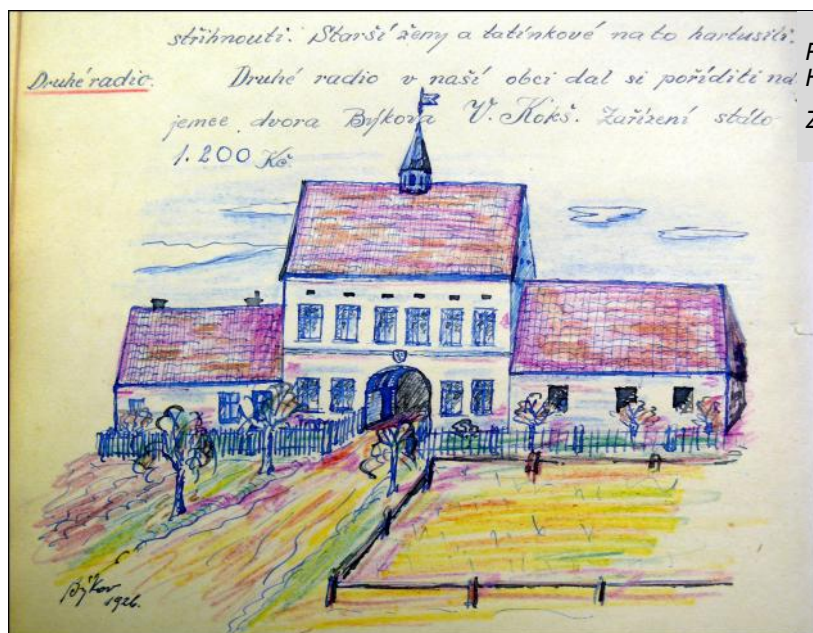 střihnouti. Starší ženy a tatínkové na to hartusili.
Druhé radio. Druhé radio v naší obci dal si poříditi ná
jemce dvora Býkova V. Kokš. Zařízení stálo
1.200 Kč.
Býkov
1926.